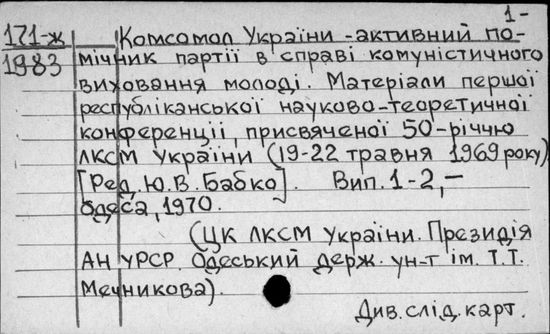 1-
171-ж Комсомол України - активний по-
1983 мічник партії в справі комуністичного
виховання молоді. Матеріали першої
республіканської науково-теоретичної
конференції, присвяченої 50-річчю
ЛКСМ України (19-22 травня 1969 року)
[Ред. Ю.В. Бабко]. Вип. 1-2, –
Одеса, 1970.
(ЦК ЛКСМ України. Президія
АН УРСР. Одеський держ. ун-т ім. Т.Т.
Мечникова).
Див. слід. карт.